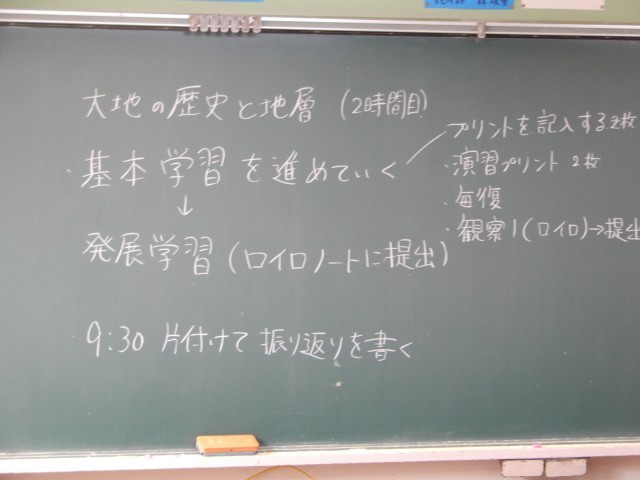 大地の歴史と地層 (2時間目)
・基本学習を進めていく
プリントを記入する2枚
・演習プリント 2枚
・毎復
・観察1(ロイロ)→提出
↓
発展学習(ロイロノートに提出)
9:30 片付けて振り返りを書く